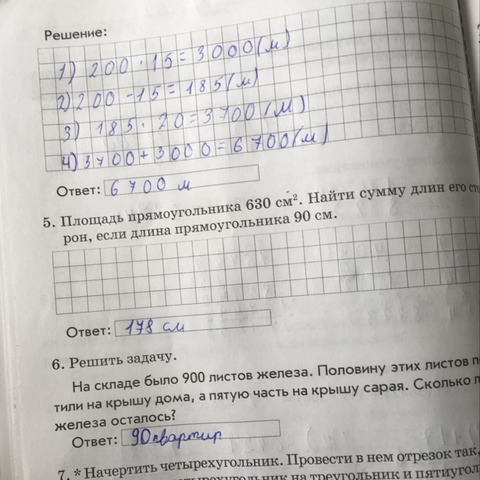 Решение:
1) 200 · 15 = 3000 (м)
2) 200 - 15 = 185 (м)
3) 185 · 20 = 3700 (м)
4) 3700 + 3000 = 6700 (м)
Ответ: 6700 м
5. Площадь прямоугольника 630 см². Найти сумму длин его
рон, если длина прямоугольника 90 см.
Ответ: 178 см
6. Решить задачу.
На складе было 900 листов железа. Половину этих листов
тили на крышу дома, а пятую часть на крышу сарая. Сколько
железа осталось?
Ответ: 90 квартир
7. * Начертить четырехугольник. Провести в нем отрезок так,
на треугольник и